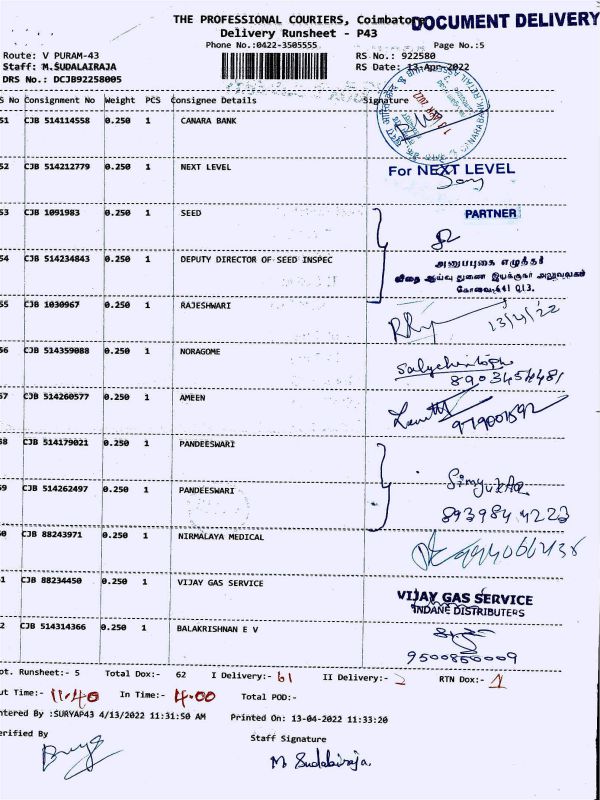 THE PROFESSIONAL COURIERS, Coimbatore
DOCUMENT DELIVERY
Delivery Runsheet - P43
Phone No.:0422-3505555
Page No.:5
Route: V PURAM-43
RS No.: 922580
Staff: M.SUDALAIRAJA
RS Date: 13-Apr-2022
DRS No.: DCJB92258005
S No Consignment No Weight PCS Consignee Details Signature
51 CJB 514114558 0.250 1 CANARA BANK
52 CJB 514212779 0.250 1 NEXT LEVEL
For NEXT LEVEL
53 CJB 1091983 0.250 1 SEED
PARTNER
54 CJB 514234843 0.250 1 DEPUTY DIRECTOR OF SEED INSPEC
விதை ஆய்வு துணை இயக்குநர் அலுவலகம்
கோவை-641 013.
55 CJB 1030967 0.250 1 RAJESHWARI
13/4/22
56 CJB 514359088 0.250 1 NORAGOME
57 CJB 514260577 0.250 1 AMEEN
58 CJB 514179021 0.250 1 PANDEESWARI
59 CJB 514262497 0.250 1 PANDEESWARI
893984 4223
60 CJB 88243971 0.250 1 NIRMALAYA MEDICAL
61 CJB 88234450 0.250 1 VIJAY GAS SERVICE
VIJAY GAS SERVICE
INDANE DISTRIBUTERS
62 CJB 514314366 0.250 1 BALAKRISHNAN E V
9500850009
Tot. Runsheet:- 5 Total Dox:- 62 I Delivery:- 61 II Delivery:- RTN Dox:- 1
Out Time:- 11.40 In Time:- 4.00 Total POD:-
Entered By :SURYAP43 4/13/2022 11:31:50 AM Printed On: 13-04-2022 11:33:20
Verified By
Staff Signature
M. Sudalairaja.